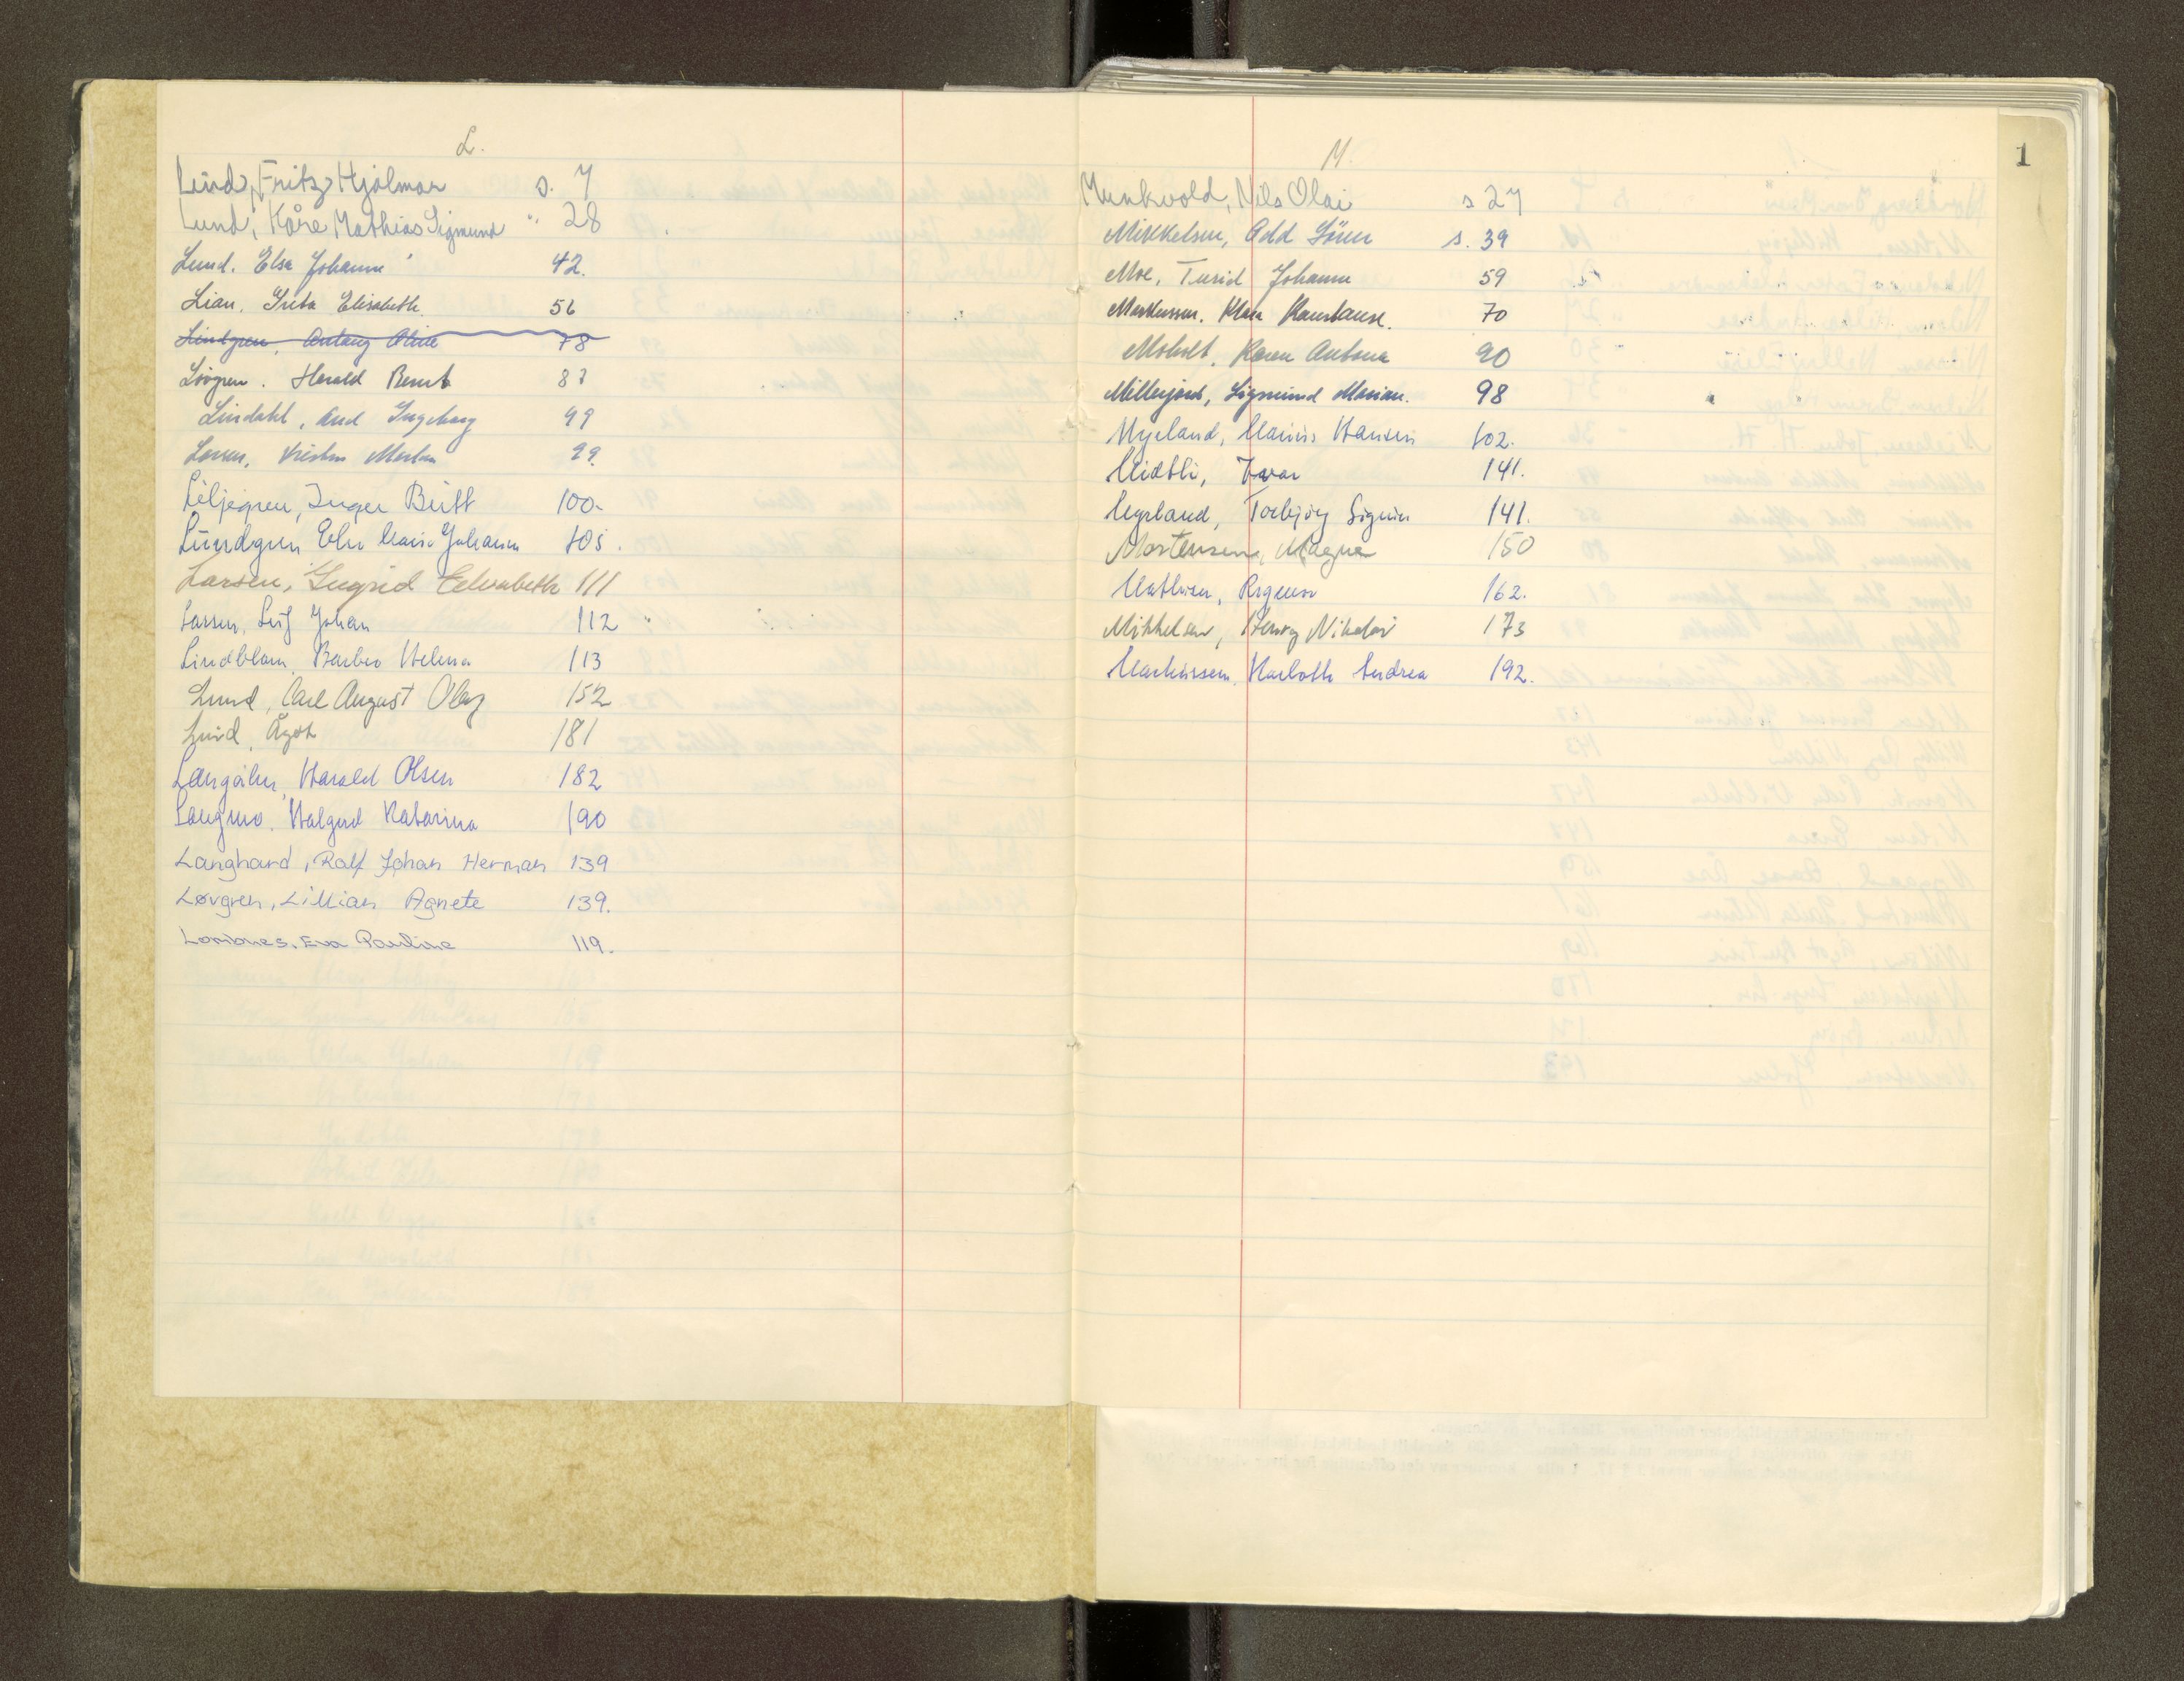 L.
Lund, Fritz Hjalmar s. 7
Lund, Kåre Mathias Sigmund " 28
Lund. Elsa Johanne 42.
Lian. Greta Elisabeth. 56
Lindgren, Aline 78
Lövgren. Harald Bernt 87
Lindahl, Aud Ingeborg 99
Larsen, 99.
Liljegren, Inger Britt 100.
Lundgren Elin Marie Johanne 105.
Larsen, Ingrid Elisabeth 111
Larsen, Leif Johan 112
Lindblom, Barbro Helena 113
Lund, Carl August Olaf 152
Lund, Ågot 181
Langåker, Harald Olsen 182
Langmo, Valgerd Katarina 190
Langhard, Ralf Johan Herman 139
Løvgren, Lillian Agnete 139.
Eva Pauline 119.
M.
Munkvold, Nils Olai s 27
Mikkelsen, Odd Sören s. 39
Moe, Turid Johanne 59
Markussen. Klara Konstanse. 70
Moholt, Karen Antona 90
Sigmund Marian. 98
Myrland, Marius Hansen 102.
Midtli, Ivar 141.
Myrland, Torbjörg Signora 141.
Mortensen, Magna 150
Mathisen, Ragnar 162.
Mikkelsen, Henry Nikolai 173
Markussen, Harlotte Andrea 192.
1